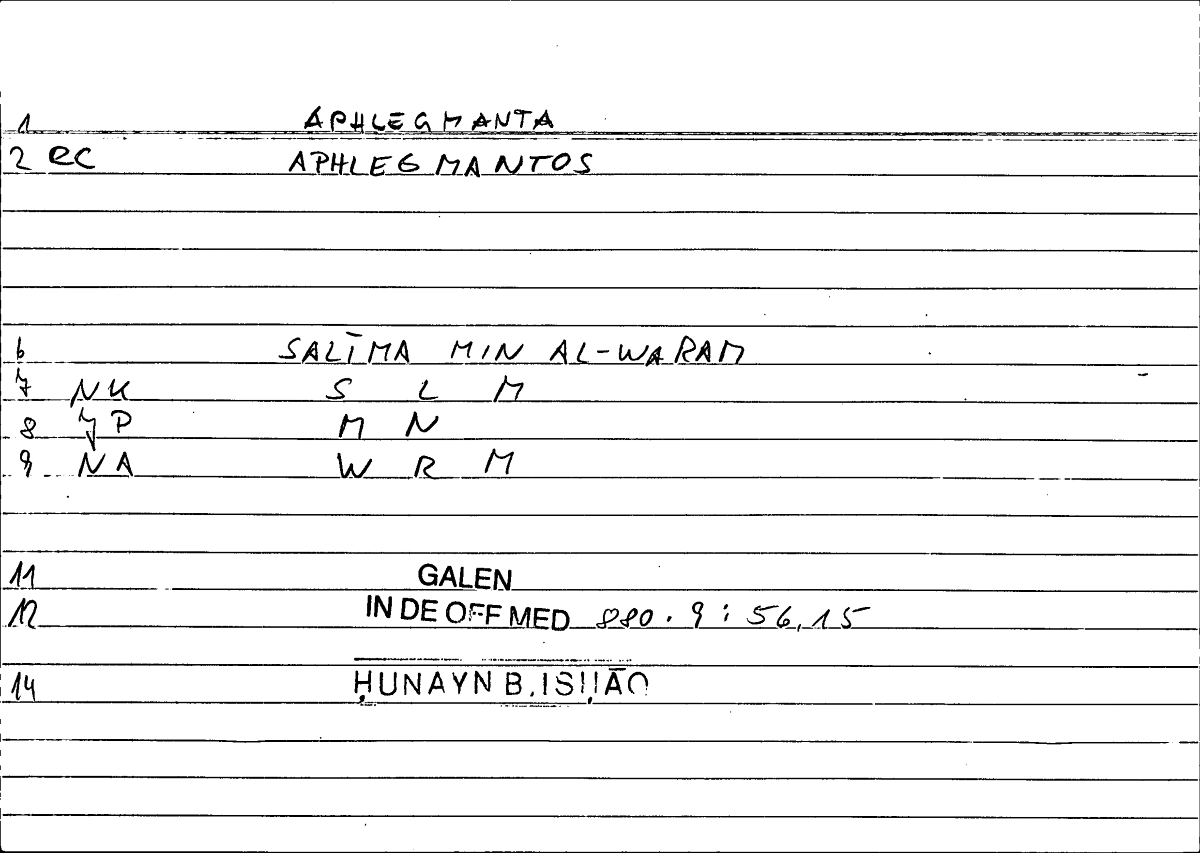 1 APHLEGMANTA
2 ec APHLEGMANTOS
6 SALĪMA MIN AL-WARAM
7 NK S L M
8 JP M N
9 NA W R M
11 GALEN
12 IN DE OFF MED 880.9:56,15
14 ḤUNAYN B. ISḤĀQ